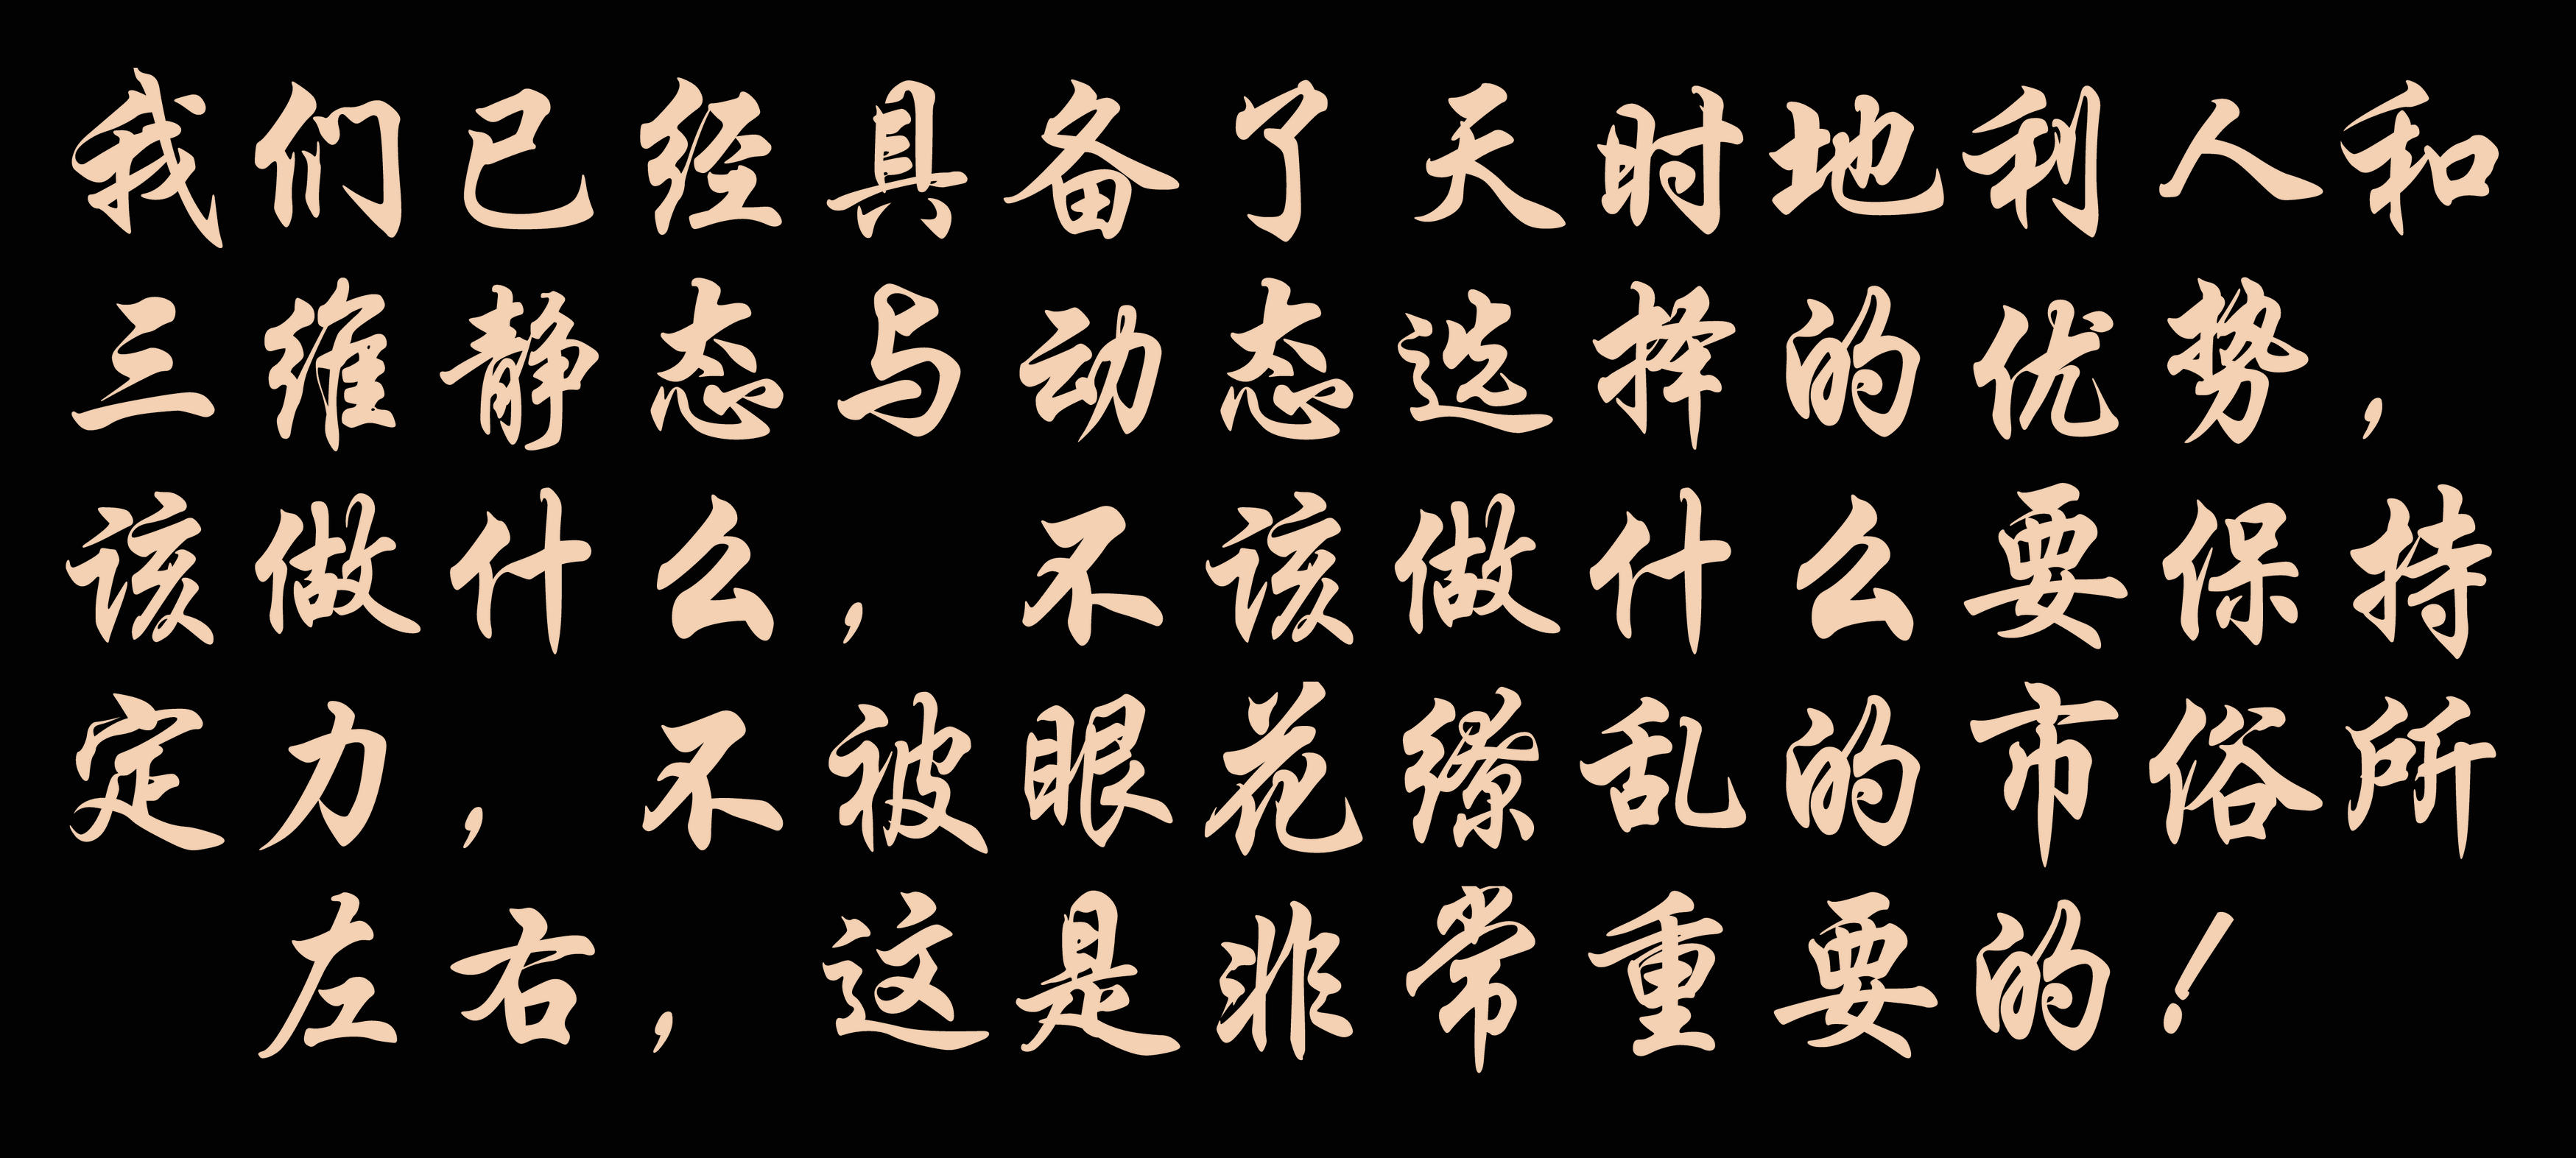 我们已经具备了天时地利人和
三维静态与动态选择的优势，
该做什么，不该做什么要保持
定力，不被眼花缭乱的市俗所
左右，这是非常重要的！